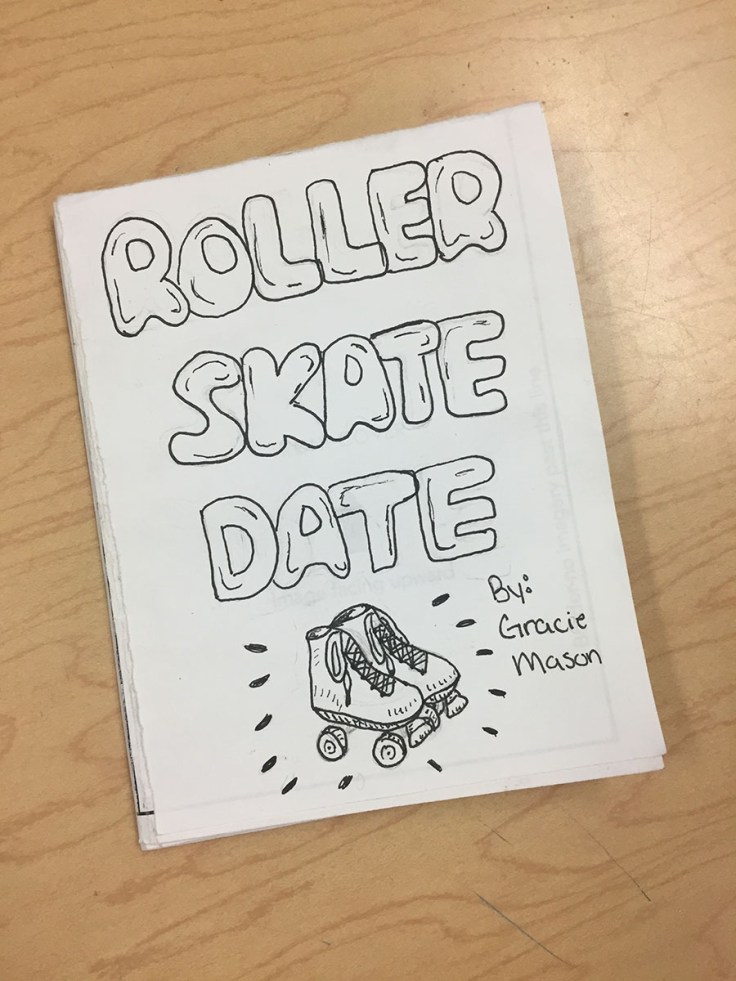 ROLLER
SKATE
DATE
By:
Gracie
Mason